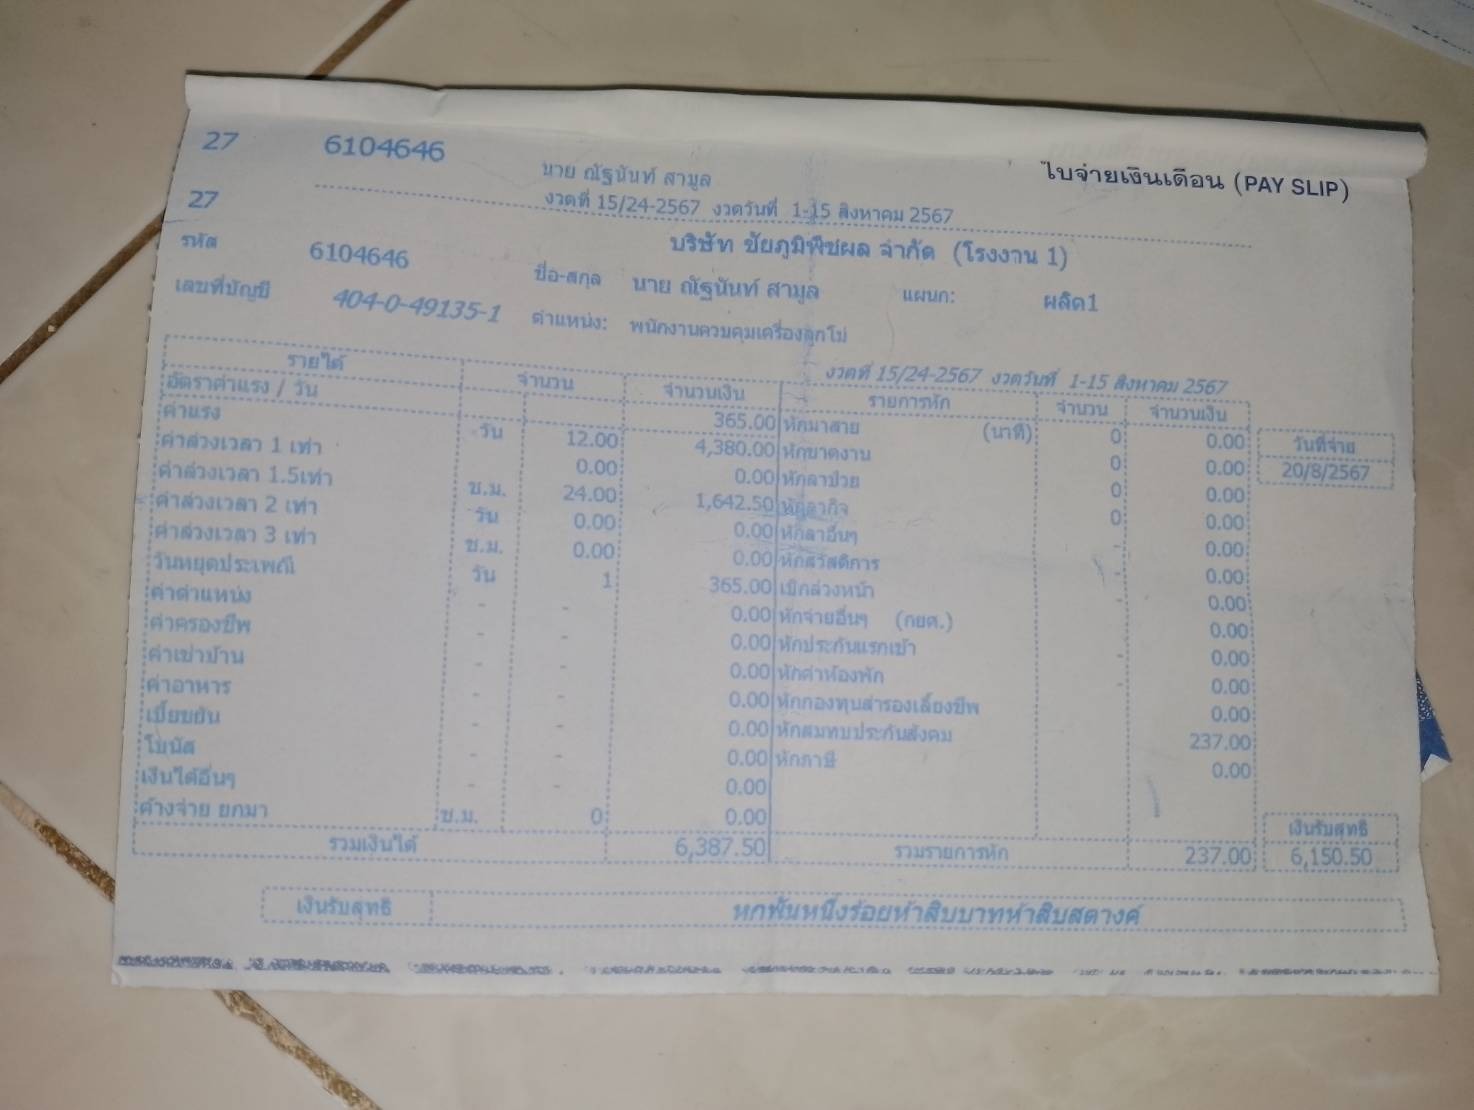 27 6104646 นาย ณัฐนันท์ สามูล ใบจ่ายเงินเดือน (PAY SLIP)
27 งวดที่ 15/24-2567 งวดวันที่ 1-15 สิงหาคม 2567
บริษัท ชัยภูมิพืชผล จำกัด (โรงงาน 1)
รหัส 6104646 ชื่อ-สกุล นาย ณัฐนันท์ สามูล แผนก: ผลิต1
เลขที่บัญชี 404-0-49135-1 ตำแหน่ง: พนักงานควบคุมเครื่องลูกโม่
งวดที่ 15/24-2567 งวดวันที่ 1-15 สิงหาคม 2567
รายได้ จำนวน จำนวนเงิน รายการหัก จำนวน จำนวนเงิน
อัตราค่าแรง / วัน 365.00 หักมาสาย (นาที) 0 0.00 วันที่จ่าย
ค่าแรง วัน 12.00 4,380.00 หักขาดงาน 0 0.00 20/8/2567
ค่าล่วงเวลา 1 เท่า 0.00 0.00 หักลาป่วย 0 0.00
ค่าล่วงเวลา 1.5เท่า ช.ม. 24.00 1,642.50 หักลากิจ 0 0.00
ค่าล่วงเวลา 2 เท่า วัน 0.00 0.00 หักลาอื่นๆ - 0.00
ค่าล่วงเวลา 3 เท่า ช.ม. 0.00 0.00 หักสวัสดิการ - 0.00
วันหยุดประเพณี วัน 1 365.00 เบิกล่วงหน้า - 0.00
ค่าตำแหน่ง - - 0.00 หักจ่ายอื่นๆ (กยศ.) 0.00
ค่าครองชีพ - - 0.00 หักประกันแรกเข้า - 0.00
ค่าเช่าบ้าน - - 0.00 หักค่าห้องพัก - 0.00
ค่าอาหาร - - 0.00 หักกองทุนสำรองเลี้ยงชีพ 0.00
เบี้ยขยัน - - 0.00 หักสมทบประกันสังคม 237.00
โบนัส - - 0.00 หักภาษี 0.00
เงินได้อื่นๆ - - 0.00
ค้างจ่าย ยกมา ช.ม. 0 0.00 เงินรับสุทธิ
รวมเงินได้ 6,387.50 รวมรายการหัก 237.00 6,150.50
เงินรับสุทธิ หกพันหนึ่งร้อยห้าสิบบาทห้าสิบสตางค์